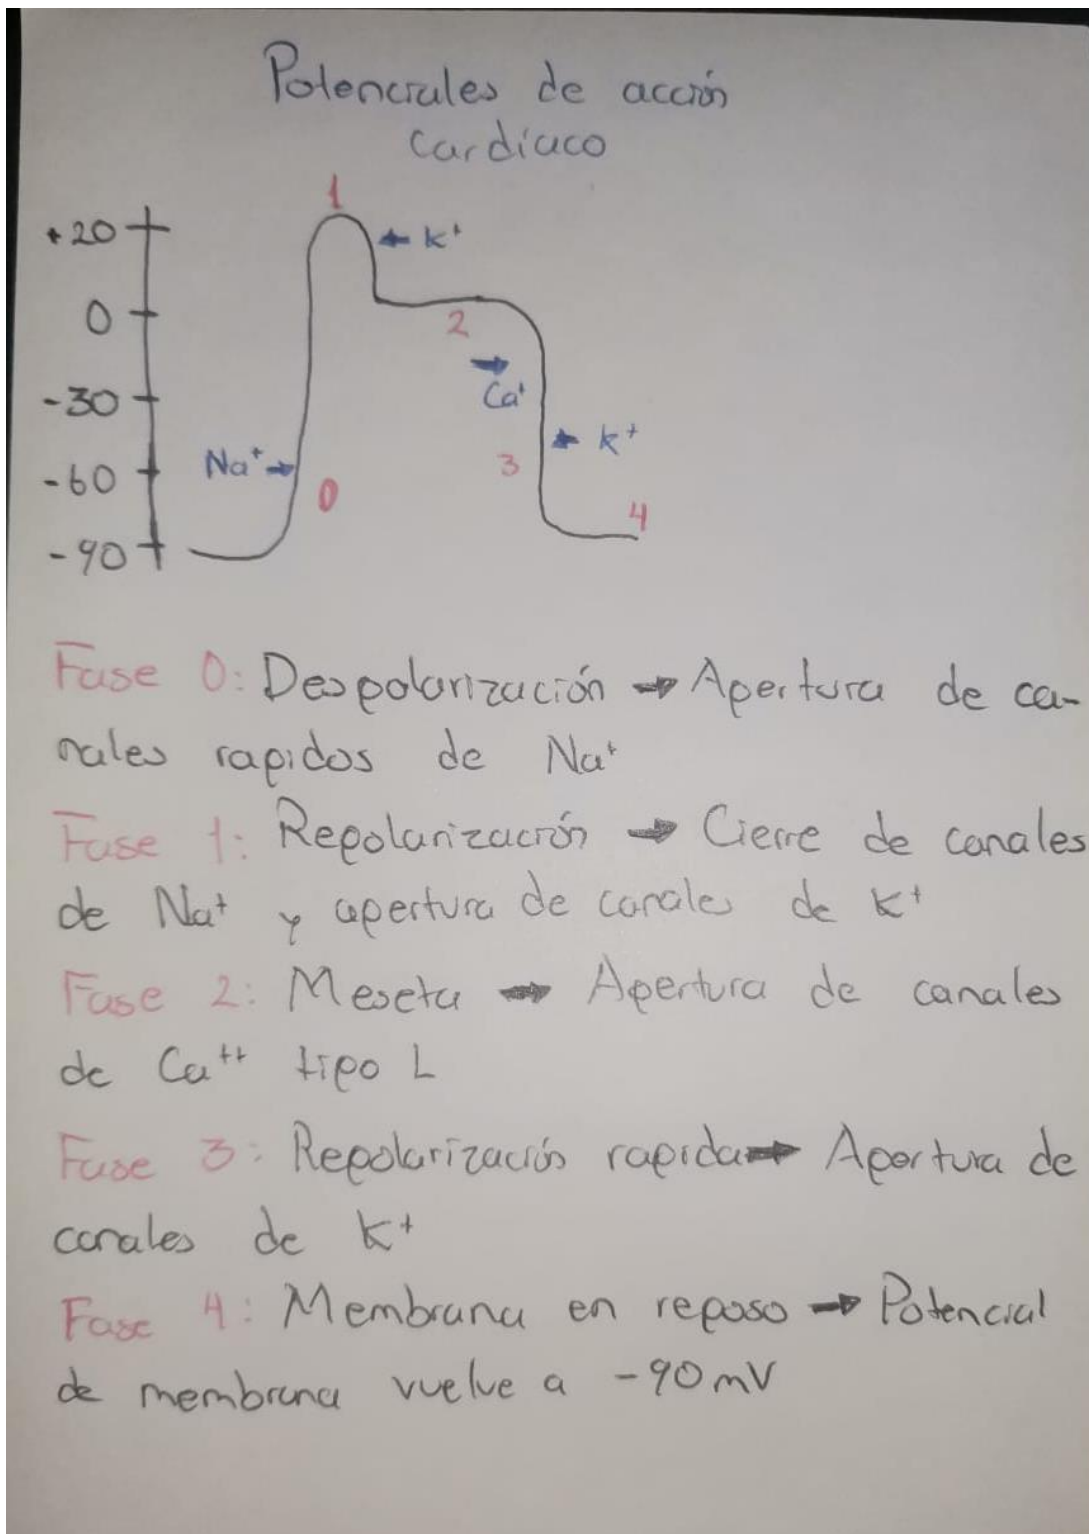 Potenciales de acción
cardíaco
1
+20
← K+
0
2
→
Ca+
-30
← K+
Na+ →
3
-60
0
4
-90
Fase 0: Despolarización → Apertura de ca-
nales rapidos de Na+
Fase 1: Repolarización → Cierre de canales
de Na+ y apertura de canales de K+
Fase 2: Meseta → Apertura de canales
de Ca++ tipo L
Fase 3: Repolarización rapida → Apertura de
canales de K+
Fase 4: Membrana en reposo → Potencial
de membrana vuelve a -90mV